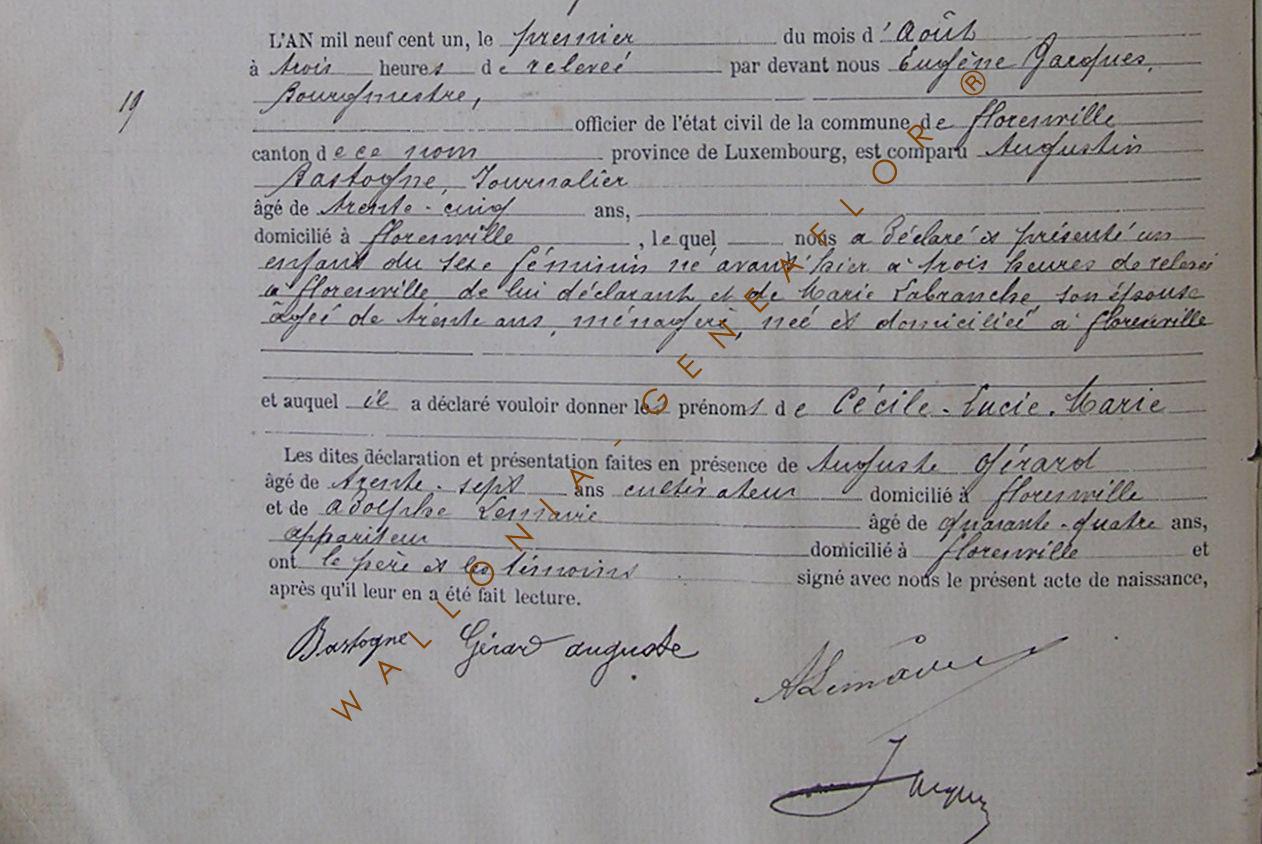 L'AN mil neuf cent un, le premier du mois d'Août
à trois heures de relevée par devant nous Eugène Jacques,
Bourgmestre,
19
officier de l'état civil de la commune de florenville
canton de ce nom province de Luxembourg, est comparu Augustin
Bastogne, Journalier
âgé de trente-cinq ans,
domicilié à florenville, lequel nous a déclaré et présenté un
enfant du sexe féminin né avant hier à trois heures de relevée
à florenville, de lui déclarant et de Marie Labranche son épouse
âgée de trente ans, ménagère, née et domiciliée à florenville
et auquel il a déclaré vouloir donner les prénoms de Cécile-Lucie-Marie
Les dites déclaration et présentation faites en présence de Auguste Gérard
âgé de trente-sept ans cultivateur domicilié à florenville
et de Adolphe Lemavie âgé de quarante-quatre ans,
appariteur domicilié à florenville et
ont le père et les témoins signé avec nous le présent acte de naissance,
après qu'il leur en a été fait lecture.
Bastogne Gérard auguste
Jacques
WALLONIA-GENEAELOR ®